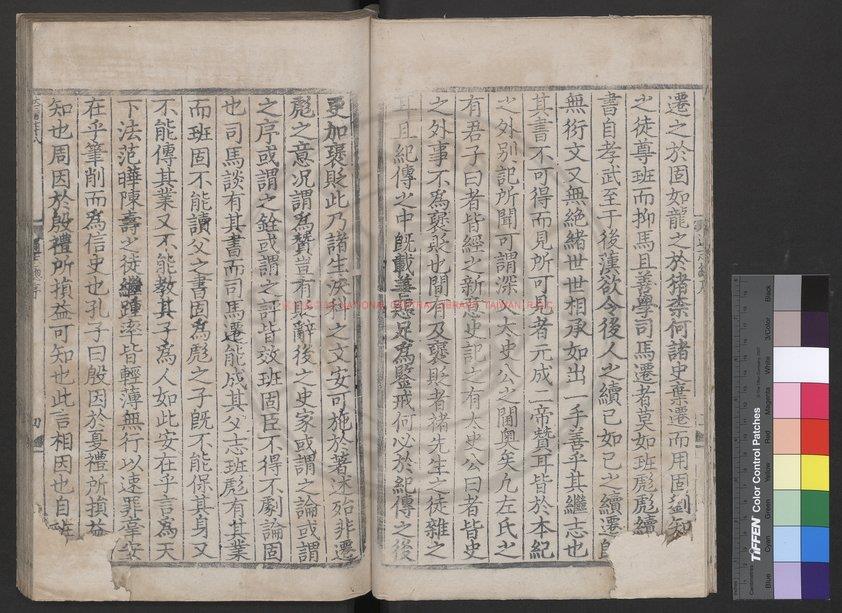 遷之於固如龍之於猪柰何諸史棄遷而用固劉知
之徒尊班而抑馬且善學司馬遷者莫如班彪彪續
書自孝武至于後漢欲令後人之續已如已之續遷旣
無衍文又無絶緒世世相承如出一手善乎其繼志也
其書不可得而見所可見者元成二帝贊耳皆於本紀
之外别記所聞可謂深入太史公之閫奥矣凡左氏之
有君子曰者皆經之新意史記之有太史公曰者皆史
之外事不爲褒貶也間有及褒貶者禇先生之徒雜之
耳且紀傳之中旣載善惡足爲鑒戒何必於紀傳之後
更加褒貶此乃諸生決科之文安可施於著述殆非遷
彪之意况謂爲贊豈有貶辭後之史家或謂之論或謂
之序或謂之銓或謂之評皆效班固臣不得不劇論固
也司馬談有其書而司馬遷能成其父志班彪有其業
而班固不能讀父之書固爲彪之子旣不能保其身又
不能傳其業又不能教其子爲人如此安在乎言爲天
下法范曄陳壽之徒繼踵率皆輕薄無行以速罪辜安
在乎筆削而爲信史也孔子曰殷因於夏禮所損益
知也周因於殷禮所損益可知也此言相因也自班
NATIONAL CENTRAL LIBRARY, TAIWAN (R.O.C.)
TIFFEN Color Control Patches
Blue Cyan Green Yellow Red Magenta White 3/Color Black